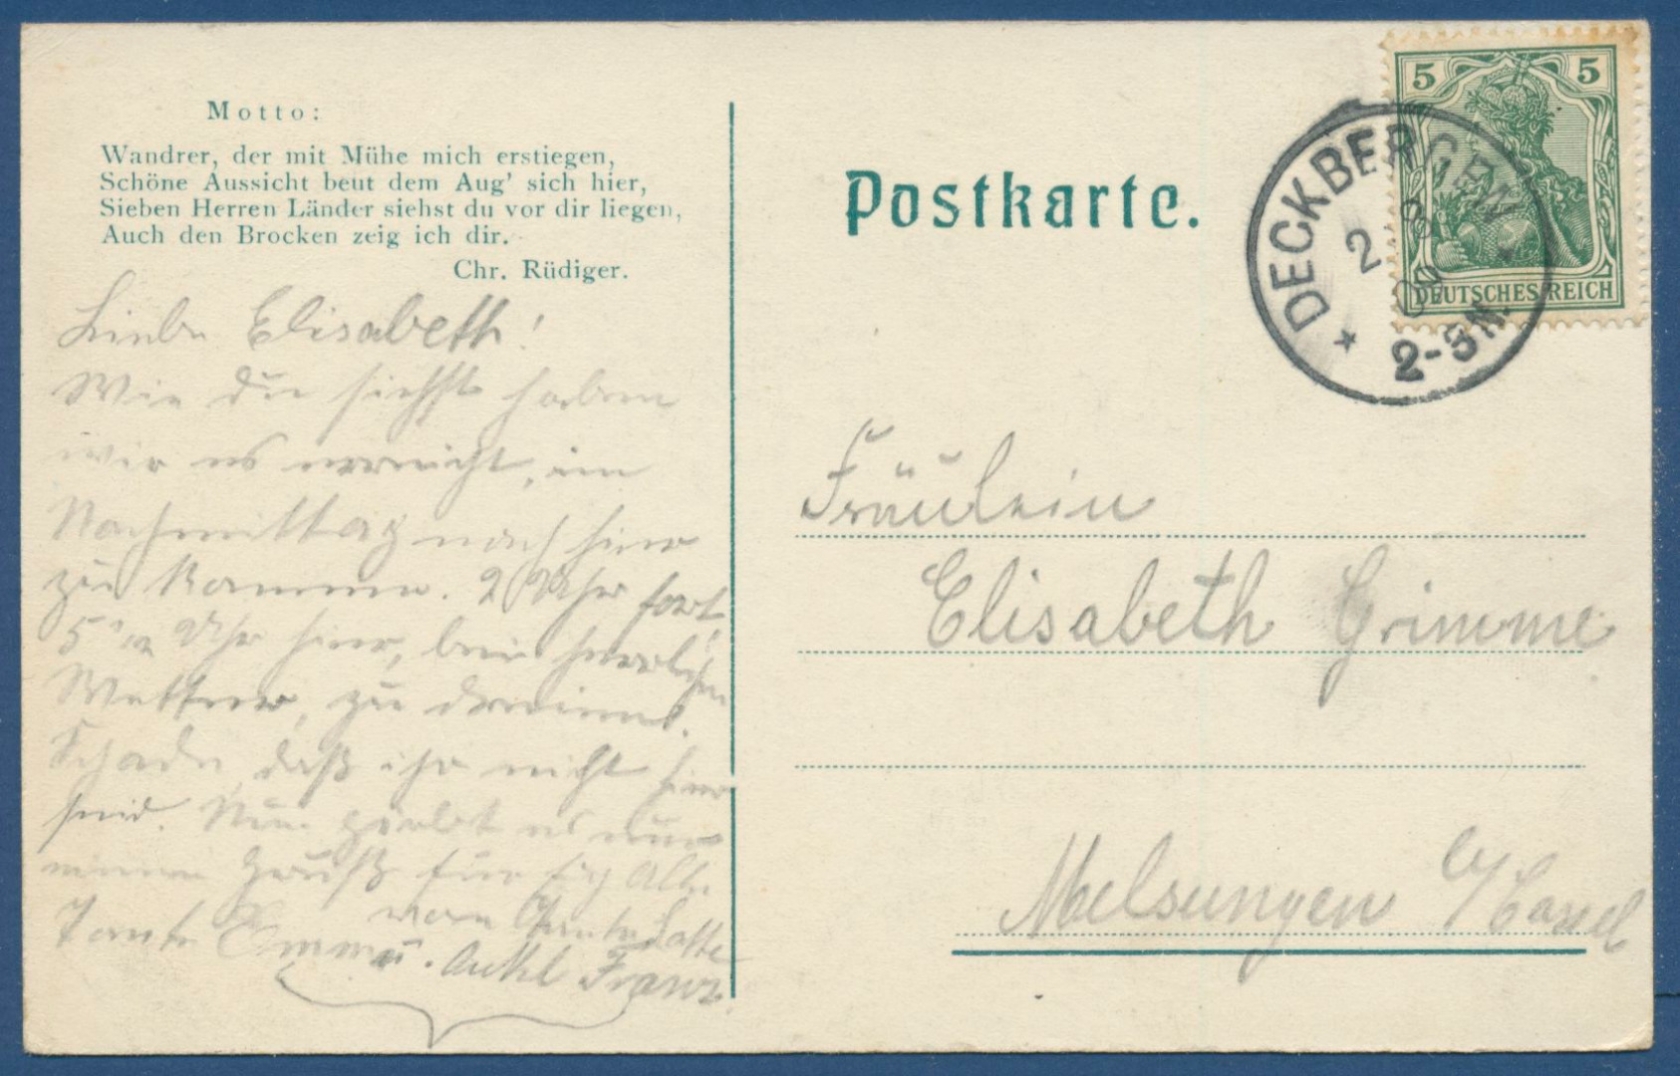 Motto:
Wandrer, der mit Mühe mich erstiegen,
Schöne Aussicht beut dem Aug' sich hier,
Sieben Herren Länder siehst du vor dir liegen,
Auch den Brocken zeig ich dir.
Chr. Rüdiger.
Liebe Elisabeth!
Wie du siehst haben
wir es erreicht, im
Nachmittag noch hier
zu kommen. 2 Uhr fort,
5 1/2 Uhr hier, beim herrlichen
Wetter, zu dreien.
Schade, daß ihr nicht hier
seid. Nun gebt es nur
einen Gruß für Euch Alle
von Tante Lotte
Tante Emma u. Onkel Franz.
Postkarte.
5 5
DEUTSCHES REICH
DECKBERGEN
2-3N.
Fräulein
Elisabeth Grimme
Melsungen b/Cassel